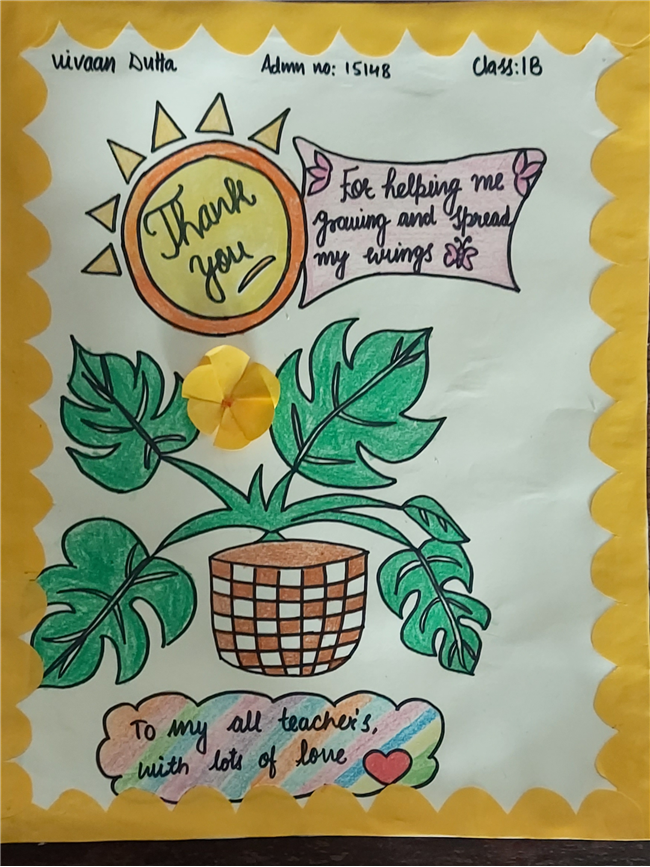 Vivaan Dutta Admn no: 15148 Class: 1B
Thank
you
For helping me
growing and spread
my wings
To my all teacher's,
with lots of love